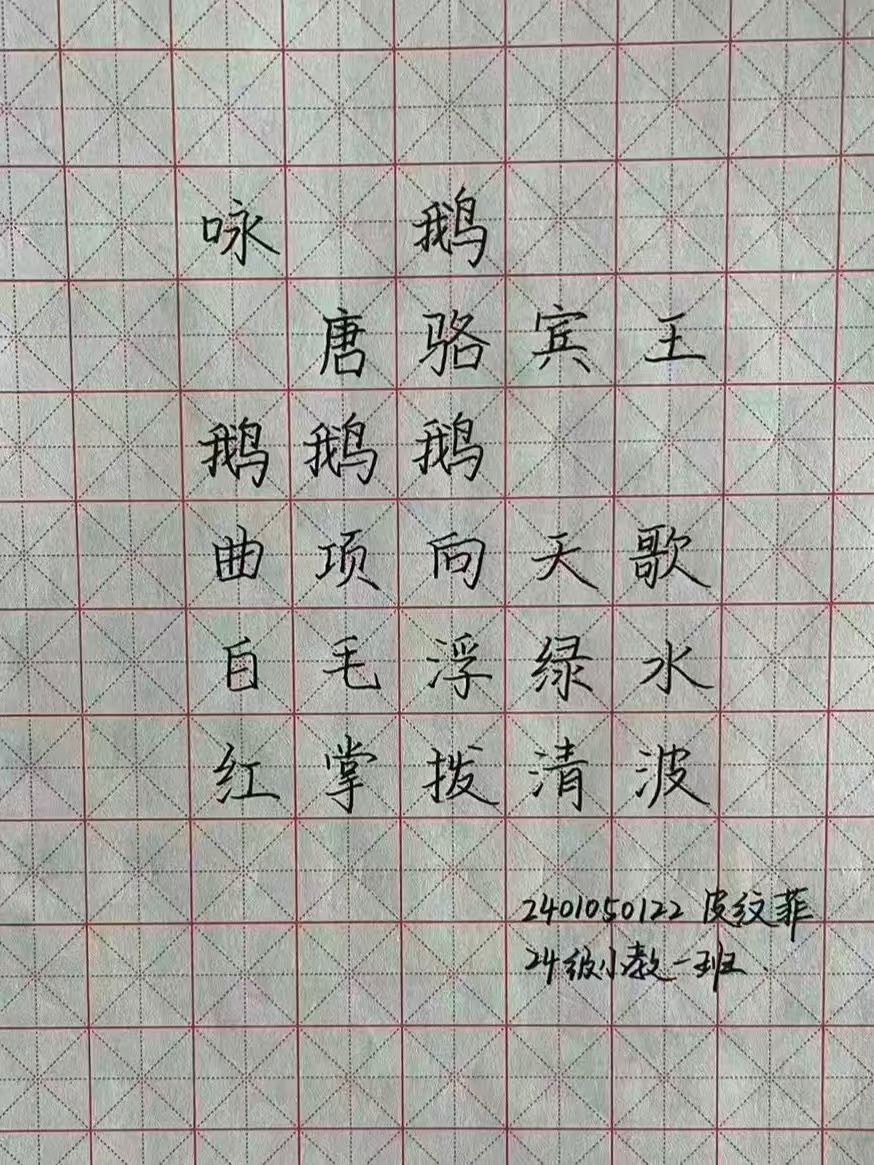 咏鹅
唐骆宾王
鹅鹅鹅
曲项向天歌
白毛浮绿水
红掌拨清波
2401050122 皮纹菲
24级小教一班